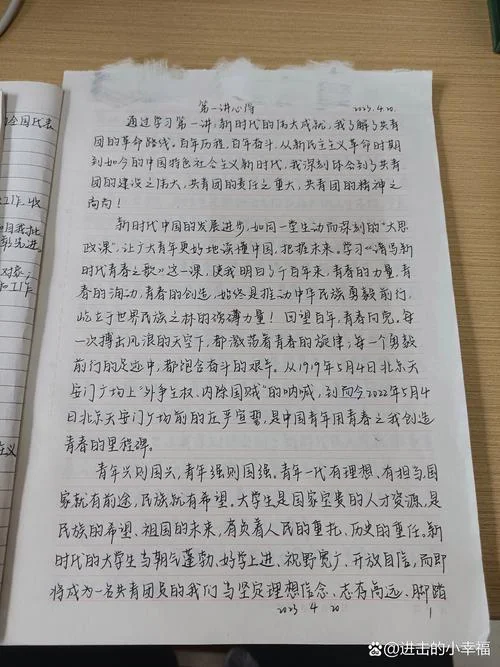 全国代表
工作.收
第一讲心得
2023.4.20.
通过学习第一讲:新时代的伟大成就,我了解了共青
团的革命路线。百年历程,百年奋斗,从新民主主义革命时期
到如今的中国特色社会主义新时代,我深刻体会到了共青
团的建设之伟大,共青团的责任之重大,共青团的精神之
高尚!
新时代中国的发展进步,如同一堂生动而深刻的“大思
政课”,让广大青年更好地读懂中国,把握未来。学习《谱写新
时代青春之歌》这一课,使我明白了百年来,青春的力量,青
春的涌动,青春的创造,始终是推动中华民族勇毅前行,
屹立于世界民族之林的磅礴力量!回望百年,青春向党。每
一次搏击风浪的天空下,都激荡着青春的旋律;每一个勇毅
前行的足迹中,都饱含奋斗的艰辛。从1919年5月4日北京天
安门广场上“外争主权、内除国贼”的呐喊,到而今2022年5月4
日北京天安门广场前的庄严宣誓,是中国青年用青春之我创造
青春的里程碑。
青年兴则国兴,青年强则国强。青年一代有理想、有担当,国
家就有前途,民族就有希望。大学生是国家宝贵的人才资源,是
民族的希望、祖国的未来,肩负着人民的重托、历史的重任。新
时代的大学生当朝气蓬勃、好学上进、视野宽广、开放自信,而即
将成为一名共青团员的我们当坚定理想信念、志存高远、脚踏
2023 4 20
1
百家号/进击的小幸福